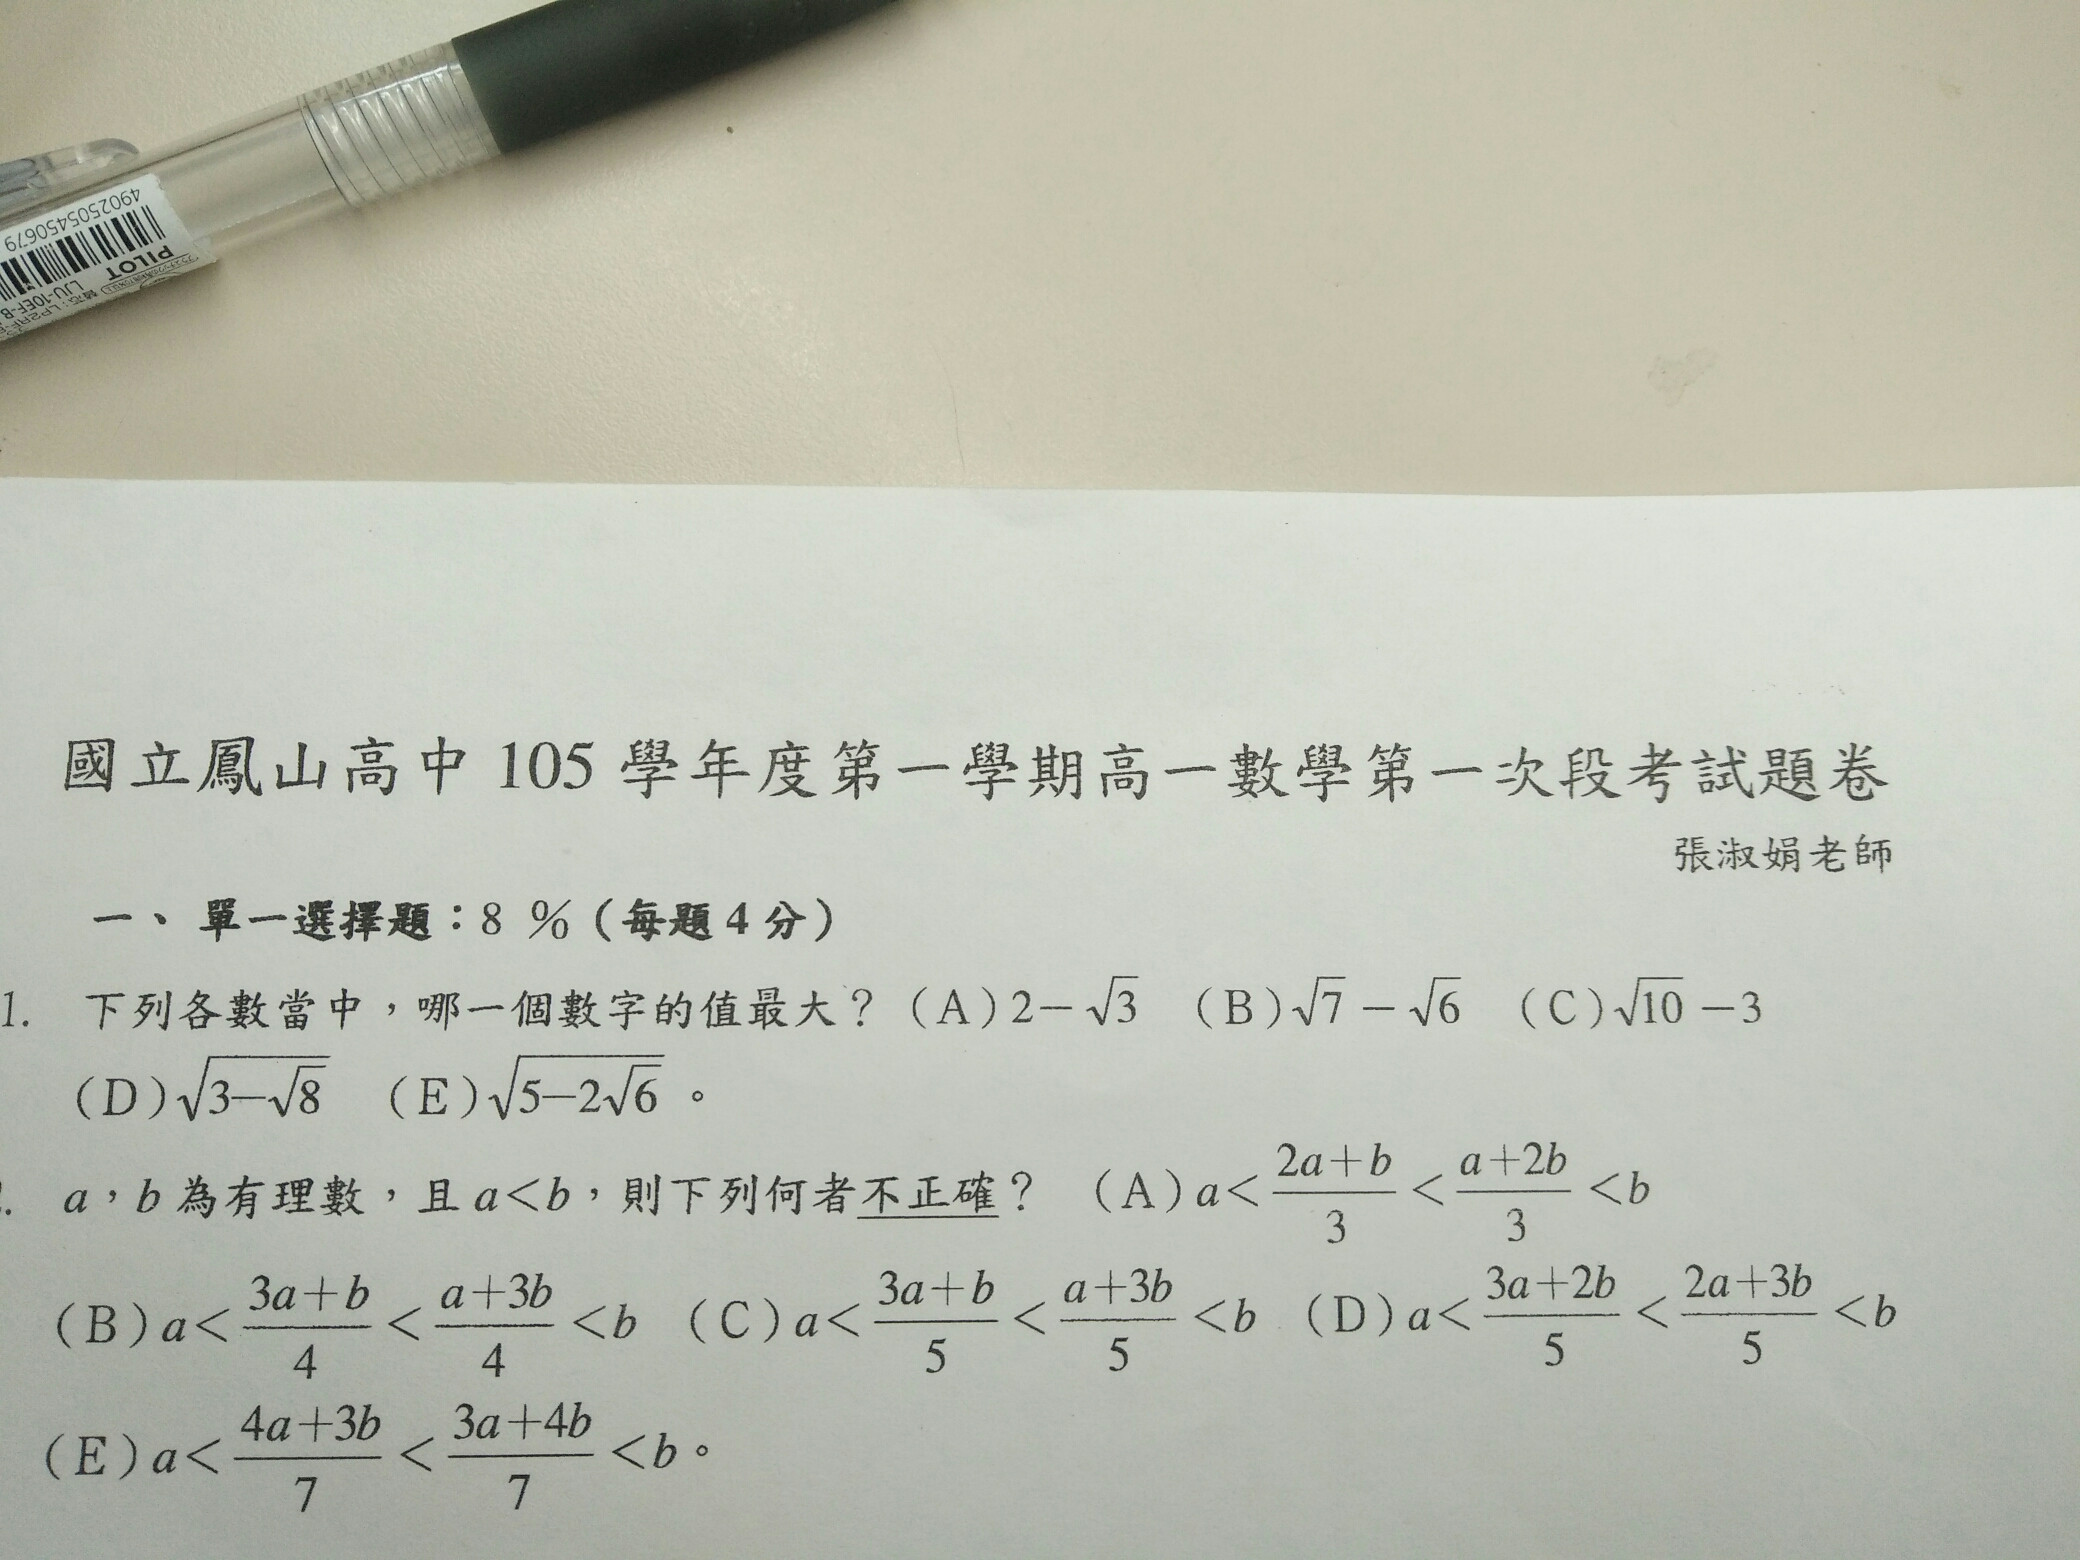 4902505450679
PILOT
LJU-10EF-B
國立鳳山高中 105 學年度第一學期高一數學第一次段考試題卷
張淑娟老師
一、 單一選擇題：8 %（每題 4 分）
1. 下列各數當中，哪一個數字的值最大？（A）2－√3 （B）√7－√6 （C）√10－3
（D）√(3－√8) （E）√(5－2√6)。
a，b 為有理數，且 a＜b，則下列何者不正確？ （A）a＜(2a＋b)/3＜(a＋2b)/3＜b
（B）a＜(3a＋b)/4＜(a＋3b)/4＜b （C）a＜(3a＋b)/5＜(a＋3b)/5＜b （D）a＜(3a＋2b)/5＜(2a＋3b)/5＜b
（E）a＜(4a＋3b)/7＜(3a＋4b)/7＜b。